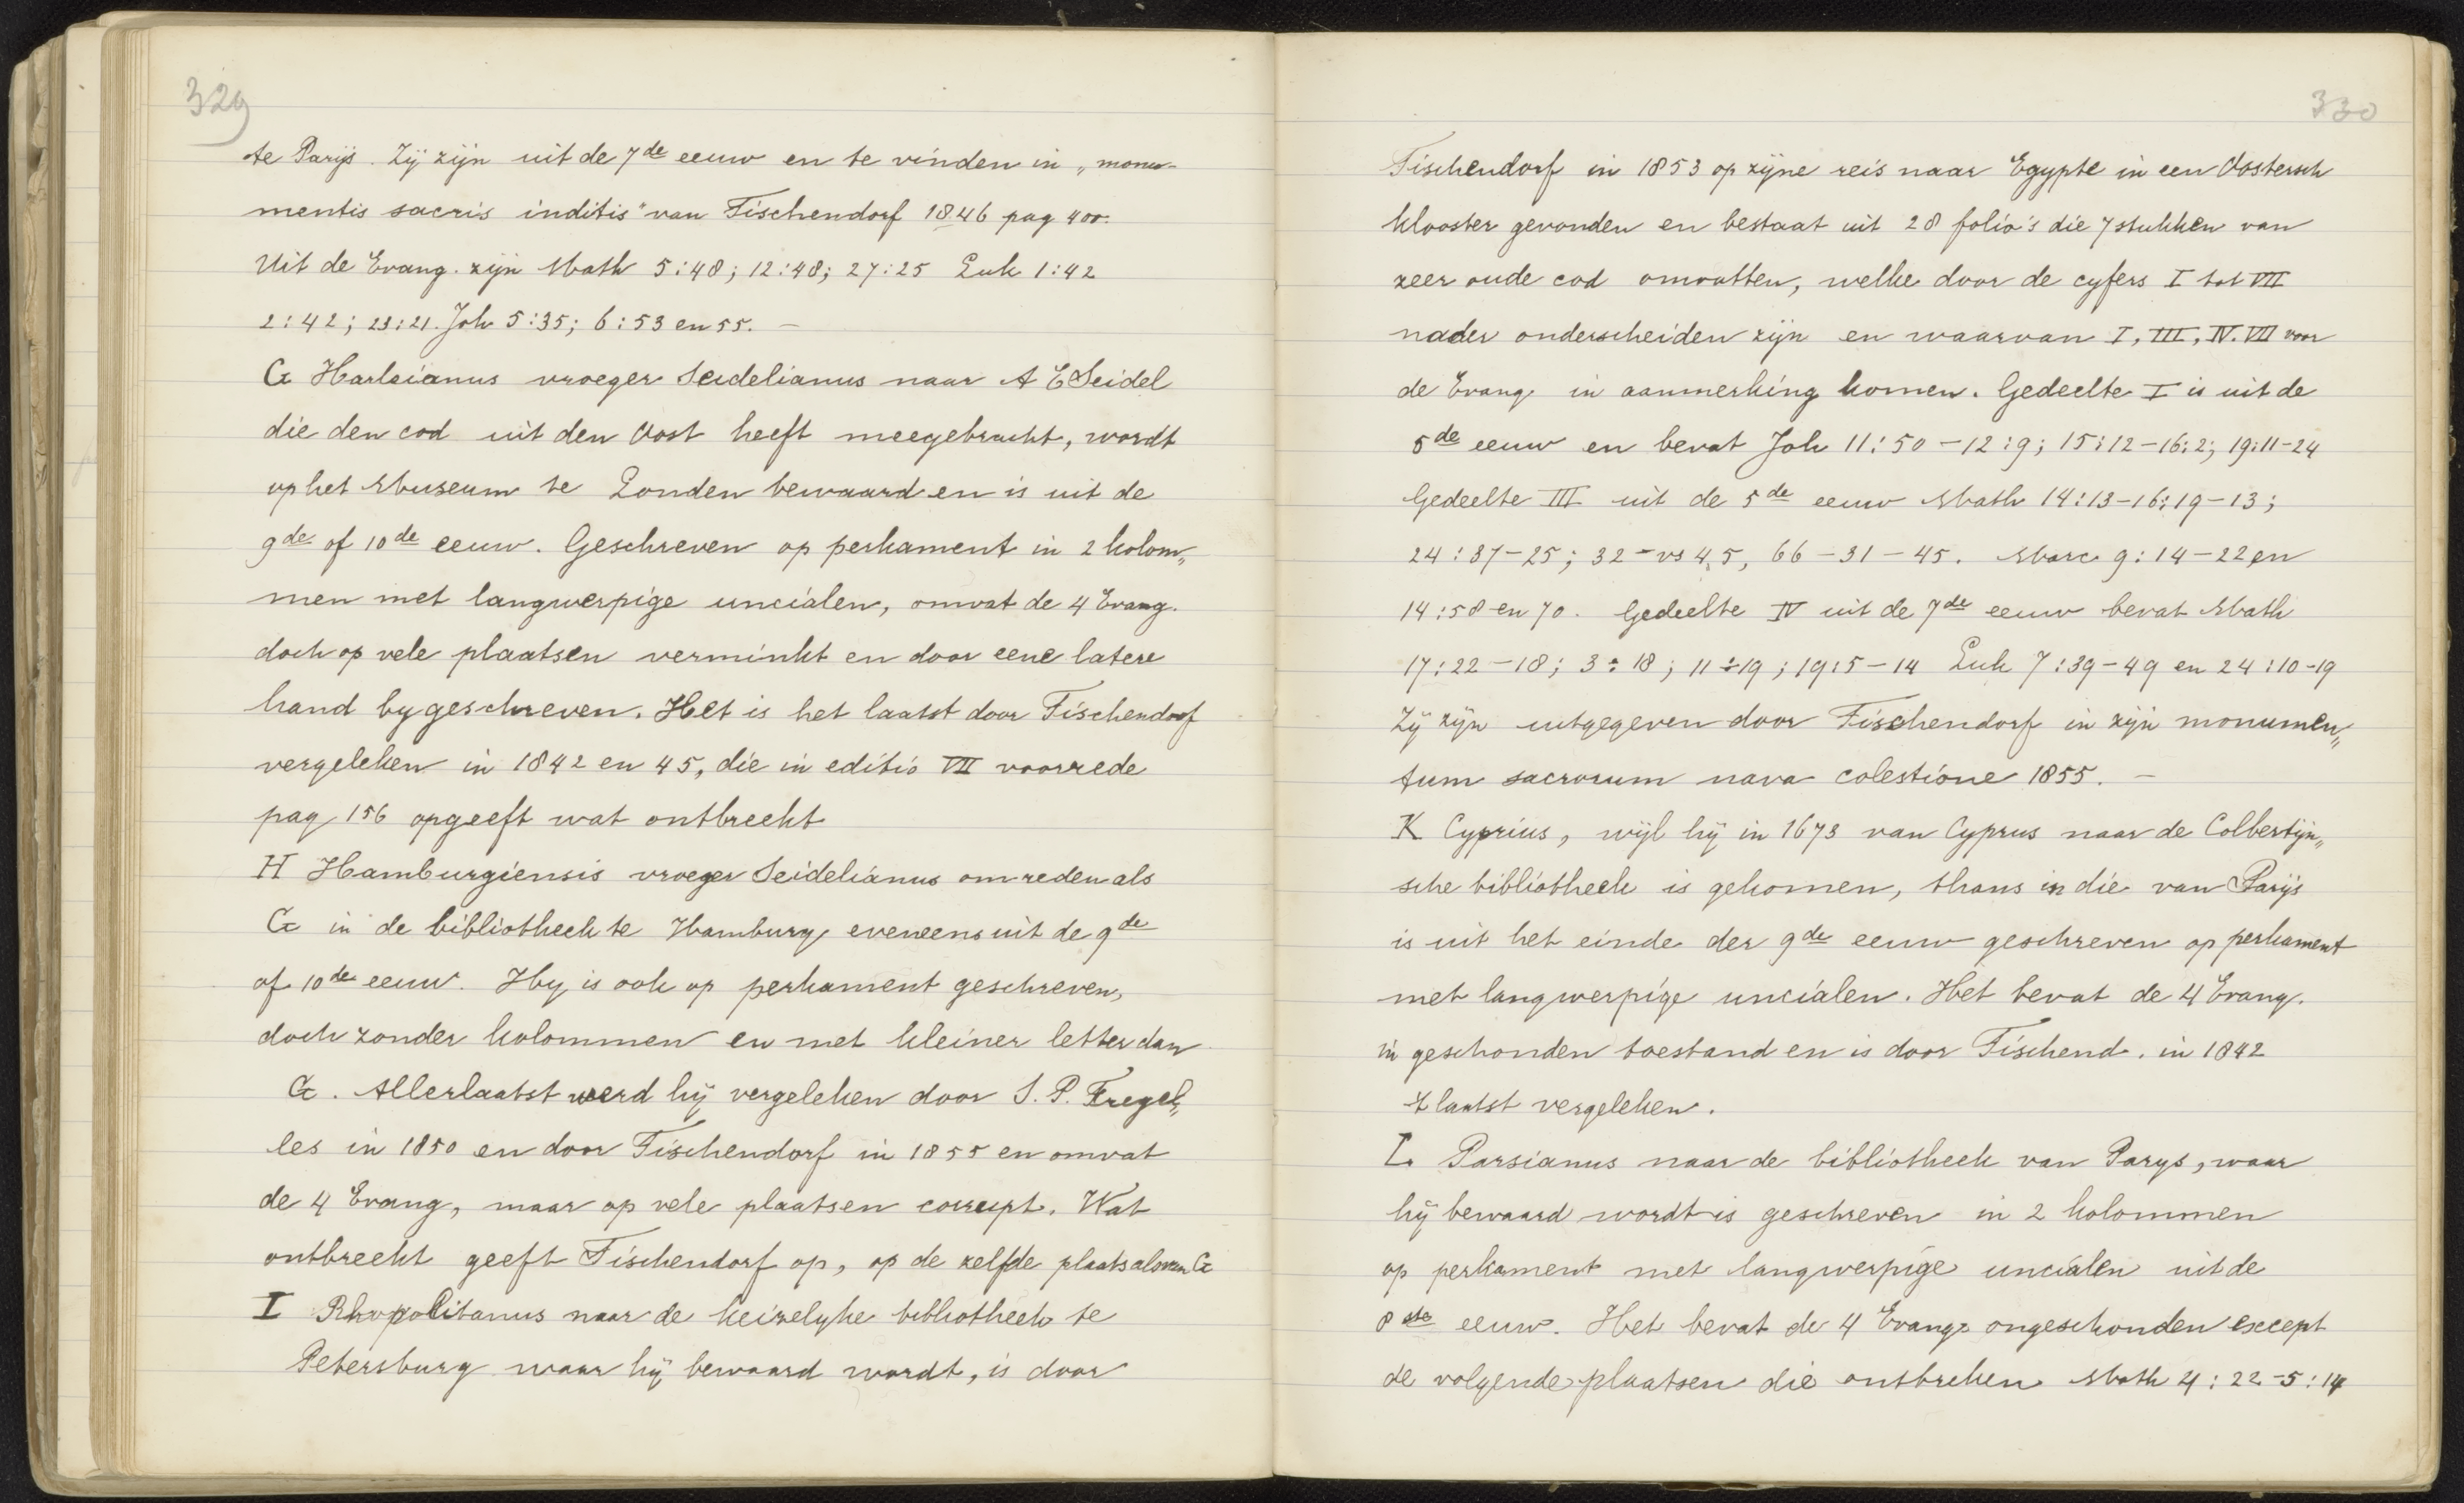 329
te Parijs. Zij zijn uit de 7de eeuw en te vinden in „monu-
mentis sacris inditis" van Tischendorf 1846 pag 400.
Uit de Evang. zijn Math 5:48; 12:48; 27:25 Luk 1:42
2:42; 23:21. Joh 5:35; 6:53 en 55. —
G Harleianus vroeger Seidelianus naar A E Seidel
die den cod uit den Oost heeft meegebracht, wordt
op het Museum te Londen bewaard en is uit de
9de of 10de eeuw. Geschreven op perkament in 2 kolom„
men met langwerpige uncialen, omvat de 4 Evang.
doch op vele plaatsen verminkt en door eene latere
hand bygeschreven. Het is het laatst door Tischendorf
vergeleken in 1842 en 45, die in editio VII voorrede
pag 156 opgeeft wat ontbreekt
H Hamburgiensis vroeger Seidelianus om reden als
G in de bibliotheek te Hamburg eveneens uit de 9de
of 10de eeuw. Hy is ook op perkament geschreven,
doch zonder kolommen en met kleiner letter dan
G. Allerlaatst werd hij vergeleken door S. P. Tregel„
les in 1850 en door Tischendorf in 1855 en omvat
de 4 Evang, maar op vele plaatsen corrupt. Wat
ontbreekt geeft Tischendorf op, op de zelfde plaats als van G
I Rhopolitanus naar de keizelyke bibliotheek te
Petersburg waar hij bewaard wordt, is door
330
Tischendorf in 1853 op zijne reis naar Egypte in een Oostersch
klooster gevonden en bestaat uit 28 folio's die 7 stukken van
zeer oude cod omvatten, welke door de cyfers I tot VII
nader onderscheiden zijn en waarvan I, III, IV. VII voor
de Evang in aanmerking komen. Gedeelte I is uit de
5de eeuw en bevat Joh 11:50-12:9; 15:12-16:2; 19:11-24
Gedeelte III uit de 5de eeuw Math 14:13-16:19-13;
24:37-25; 32-vs 45, 66-31-45. Marc 9:14-22 en
14:58 en 70. Gedeelte IV uit de 7de eeuw bevat Math
17:22-18; 3:18; 11÷19; 19:5-14 Luk 7:39-49 en 24:10-19
Zij zijn uitgegeven door Tischendorf in zijn monumen„
tum sacrorum nava colestione 1855. —
K Cyprius, wijl hij in 1673 van Cyprus naar de Colbertijn„
sche bibliotheek is gekomen, thans in die van Parijs
is uit het einde der 9de eeuw geschreven op perkament
met langwerpige uncialen. Het bevat de 4 Evang.
in geschonden toestand en is door Tischend. in 1842
't laatst vergeleken.
L Parsianus naar de bibliotheek van Parys, waar
hij bewaard wordt is geschreven in 2 kolommen
op perkament met langwerpige uncialen uit de
8ste eeuw. Het bevat de 4 Evang ongeschonden except
de volgende plaatsen die ontbreken Math 4:22-5:14